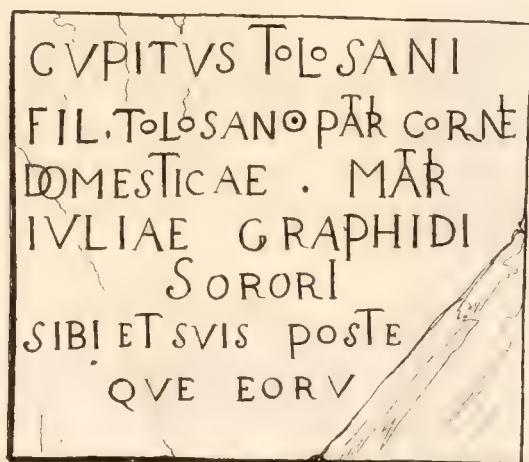 CVPITVS TOLOSANI
FIL. TOLOSANO PATR CORNE
DOMESTICAE . MATR
IVLIAE GRAPHIDI
SORORI
SIBI ET SVIS POSTE
QVE EORV